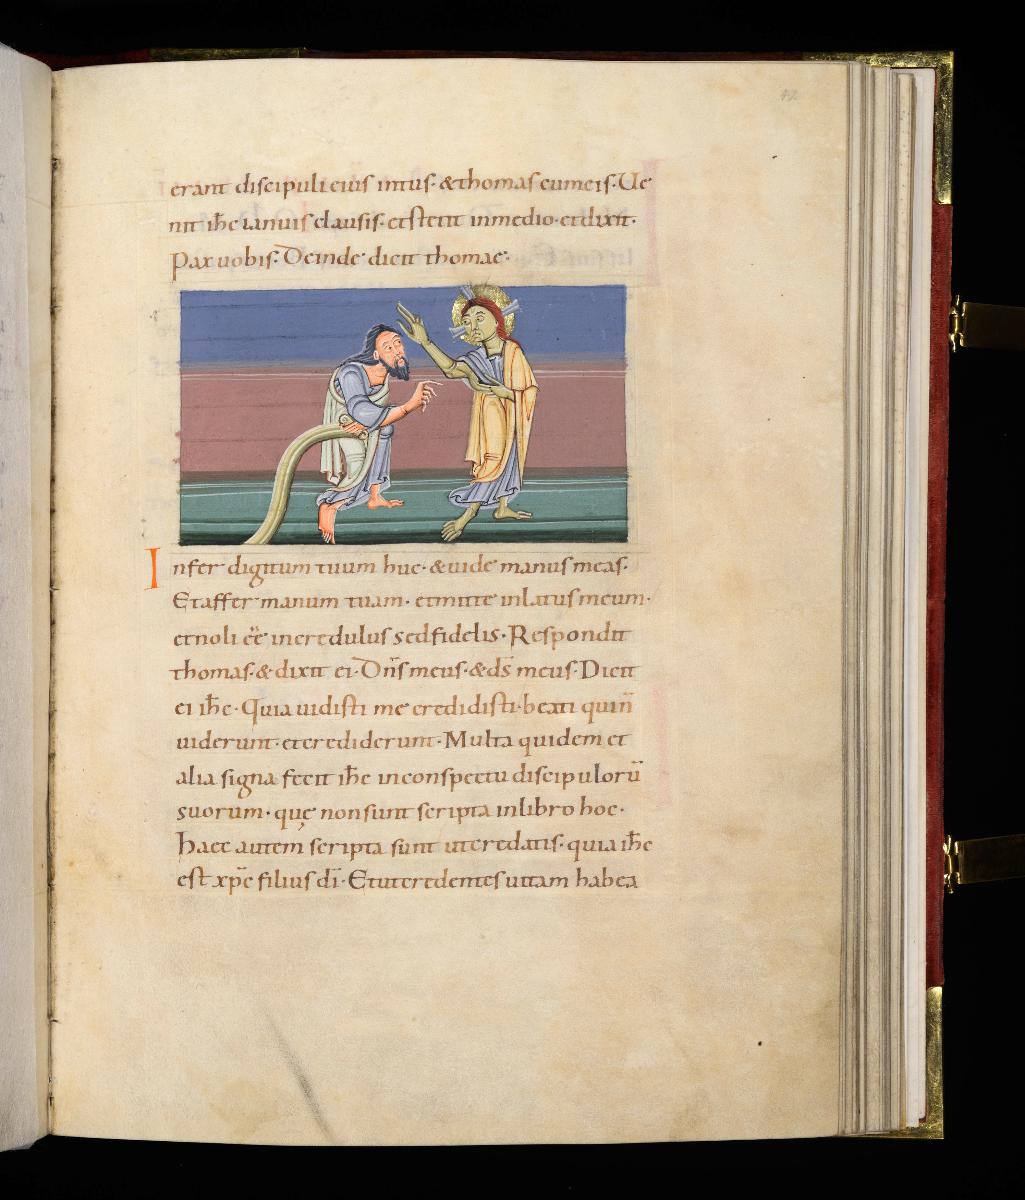 42
erant discipuli eius intus· & thomas cum eis· Ue
nit ihc̄ ianuis clausis· et stetit in medio· et dixit·
Pax uobis· Deinde dicit thomae·
Infer digitum tuum huc· & uide manus meas·
Et affer manum tuam· et mitte in latus meum·
et noli ēē incredulus sed fidelis· Respondit
thomas· & dixit ei· Dn̄s meus· & ds̄ meus· Dicit
ei ihc̄· Quia uidisti me credidisti· beati qui n̄
uiderunt· et crediderunt· Multa quidem et
alia signa fecit ihc̄ in conspectu discipulorū
suorum· quę non sunt scripta in libro hoc·
haec autem scripta sunt ut credatis· quia ihc̄
est xpc̄ filius dī· Et ut credentes uitam habea